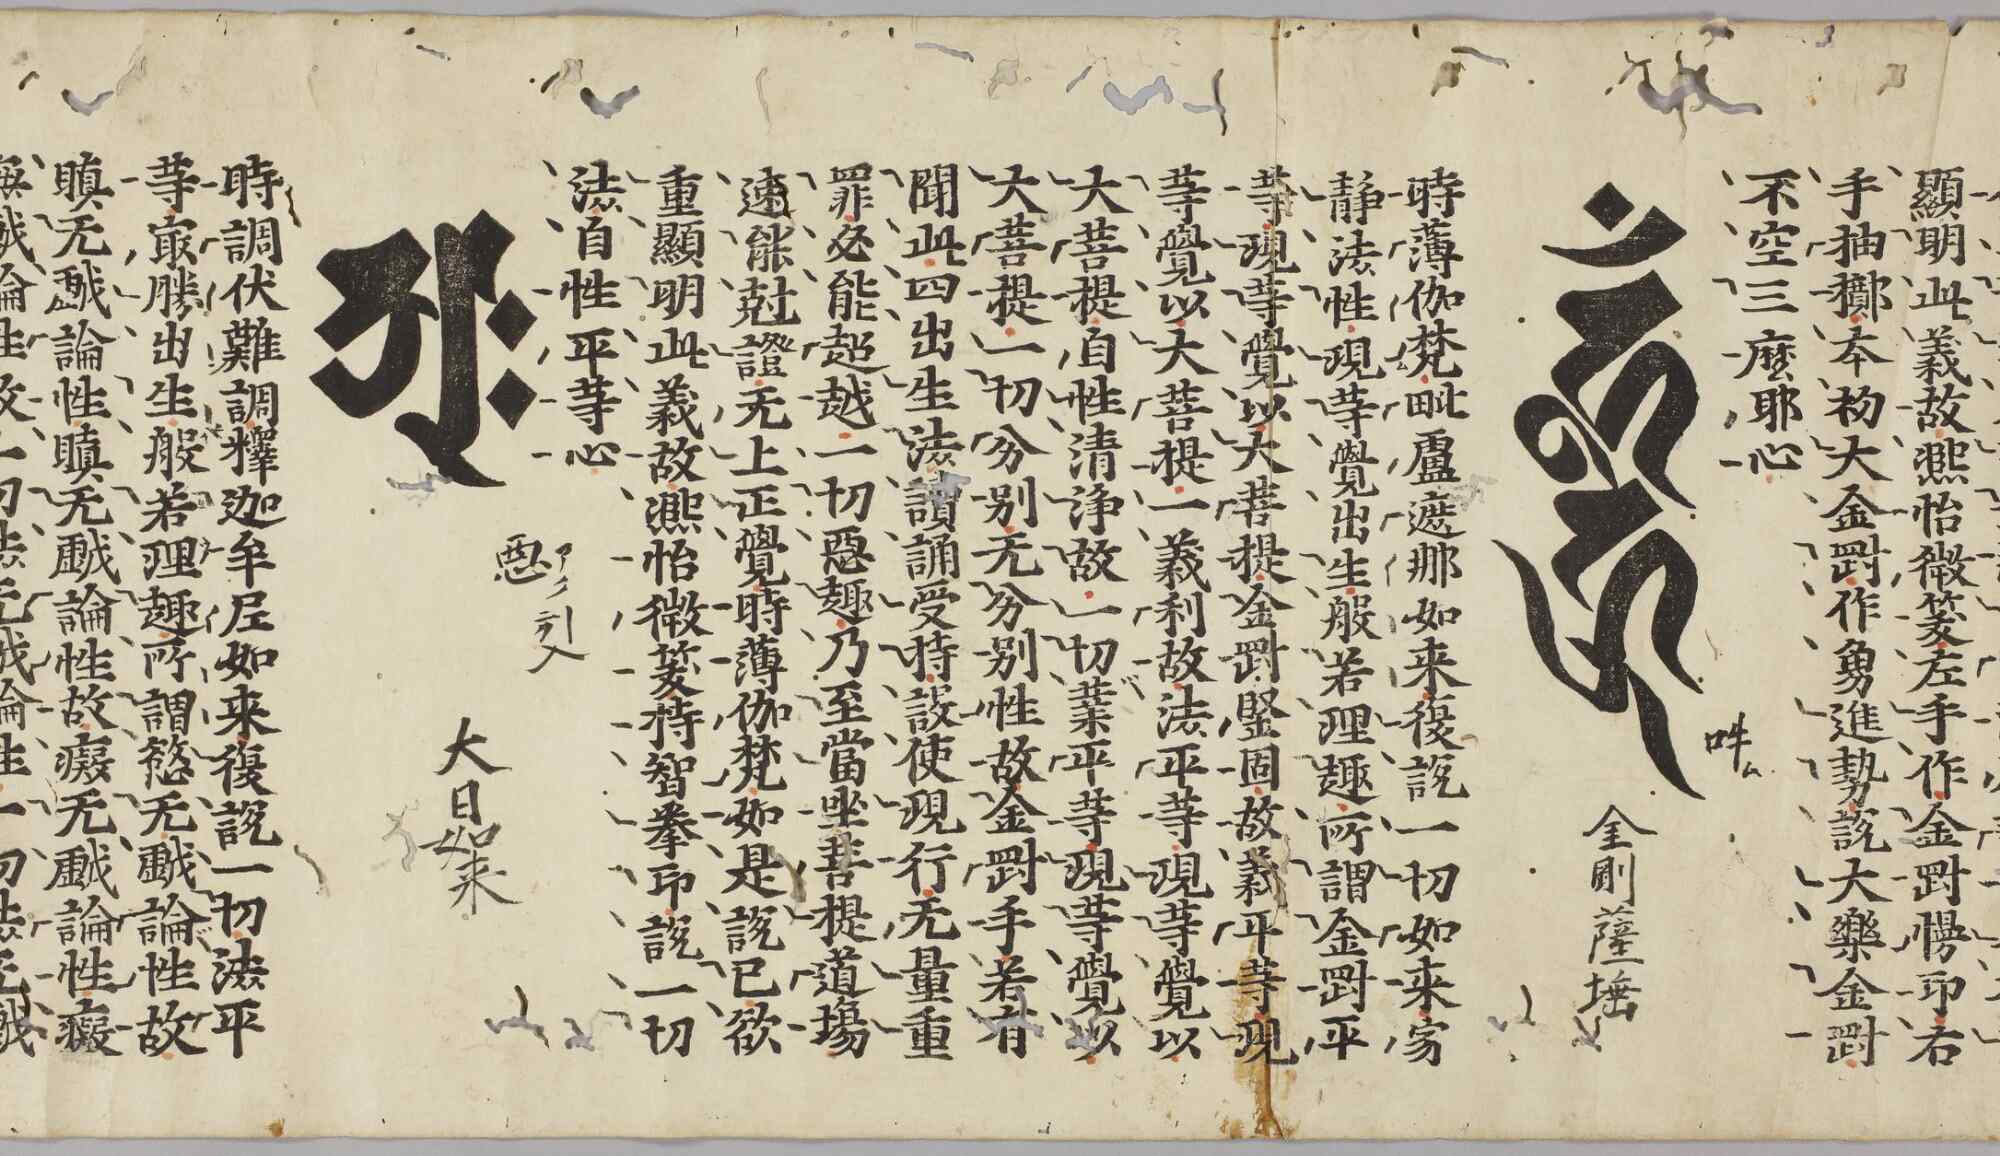 顯明此義故熈怡微笶左手作金剛慢印右
手抽擲本初大金剛作勇進勢說大樂金剛
不空三麼耶心
吽ム
金剛薩埵
時薄伽梵毗盧遮那如来復說一切如来寂
靜法性現等覺出生般若理趣所謂金剛平
等現等覺以大菩提金剛堅固故義平等現
等覺以大菩提一義利故法平等現等覺以
大菩提自性清浄故一切業平等現等覺以
大菩提一切分別无分別性故金剛手若有
聞此四出生法讀誦受持設使現行无量重
罪必能超越一切惡趣乃至當坐菩提道場
速能尅證无上正覺時薄伽梵如是說已欲
重顯明此義故熈怡微笶持智拳印說一切
法自性平等心
アク引入
惡
大日如来
時調伏難調釋迦牟尼如来復說一切法平
等冣勝出生般若理趣所謂慾无戯論性故
瞋无戯論性瞋无戯論性故癡无戯論性癡
無戯論性故一切法无戯論性一切法无戯